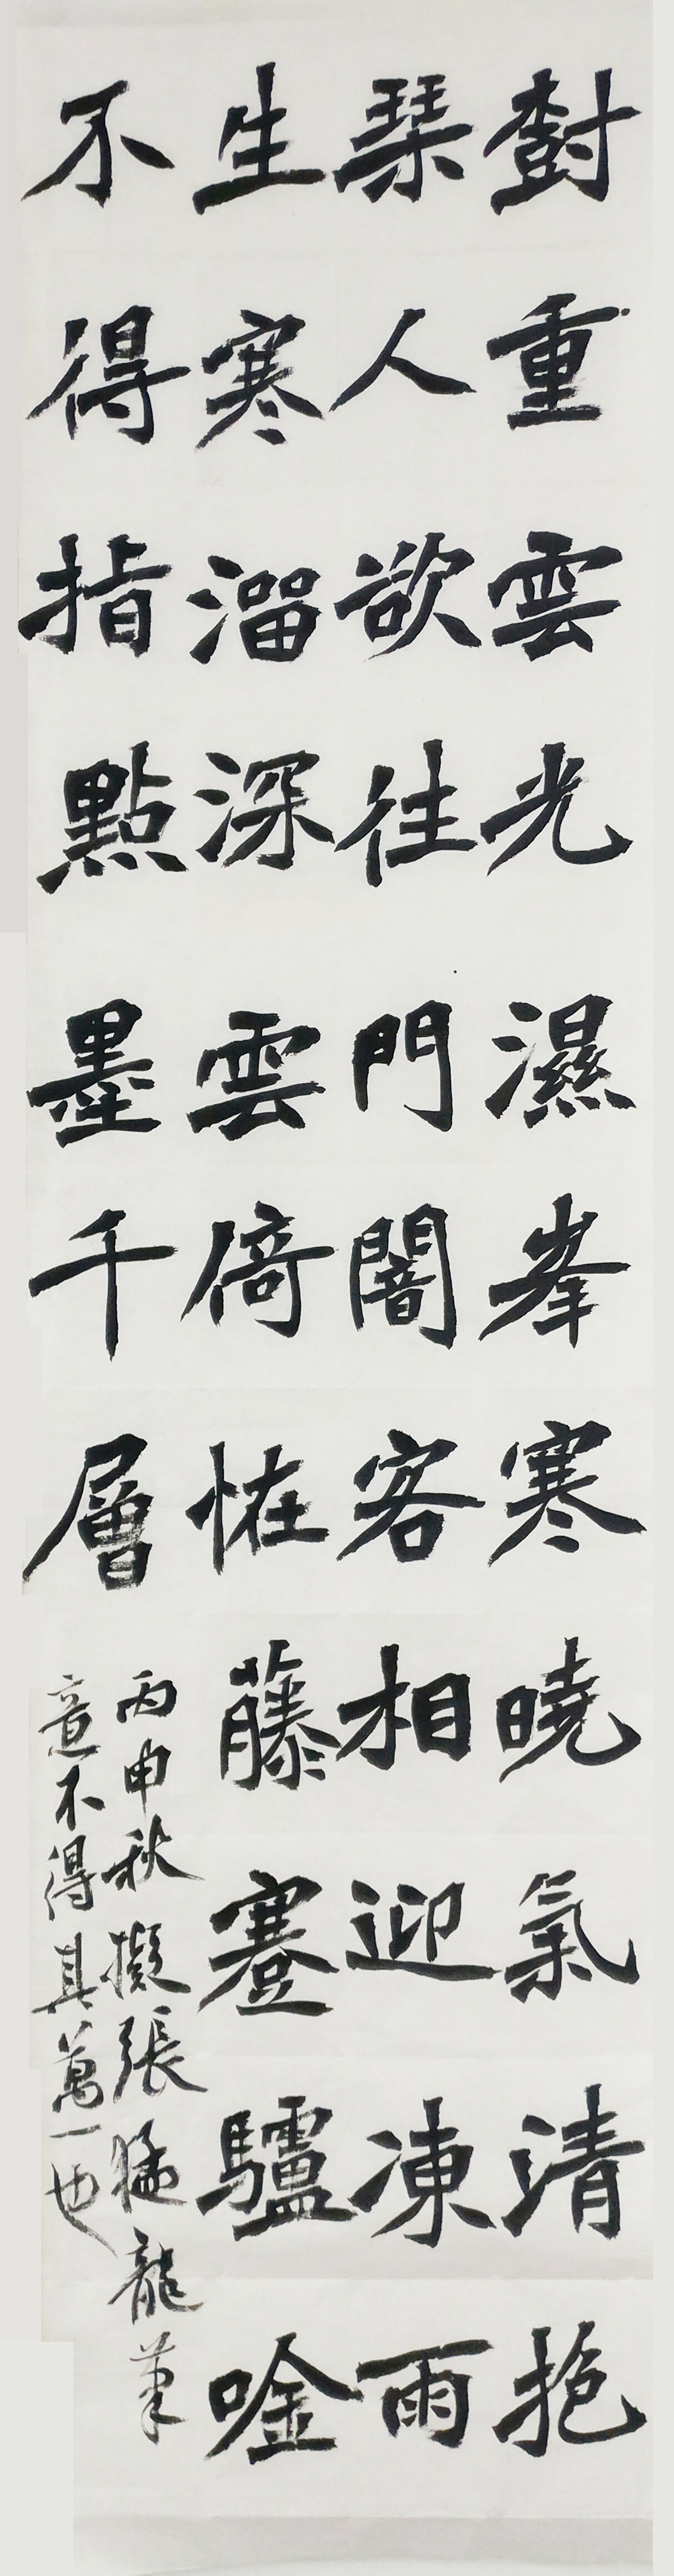 樹重雲光濕峯寒曉氣清抱
琹人欲往門闇客相迎凍雨
生寒溜深雲倚恠藤蹇驢唫
不得指點墨千層
丙申秋擬張猛龍筆
意不得其萬一也